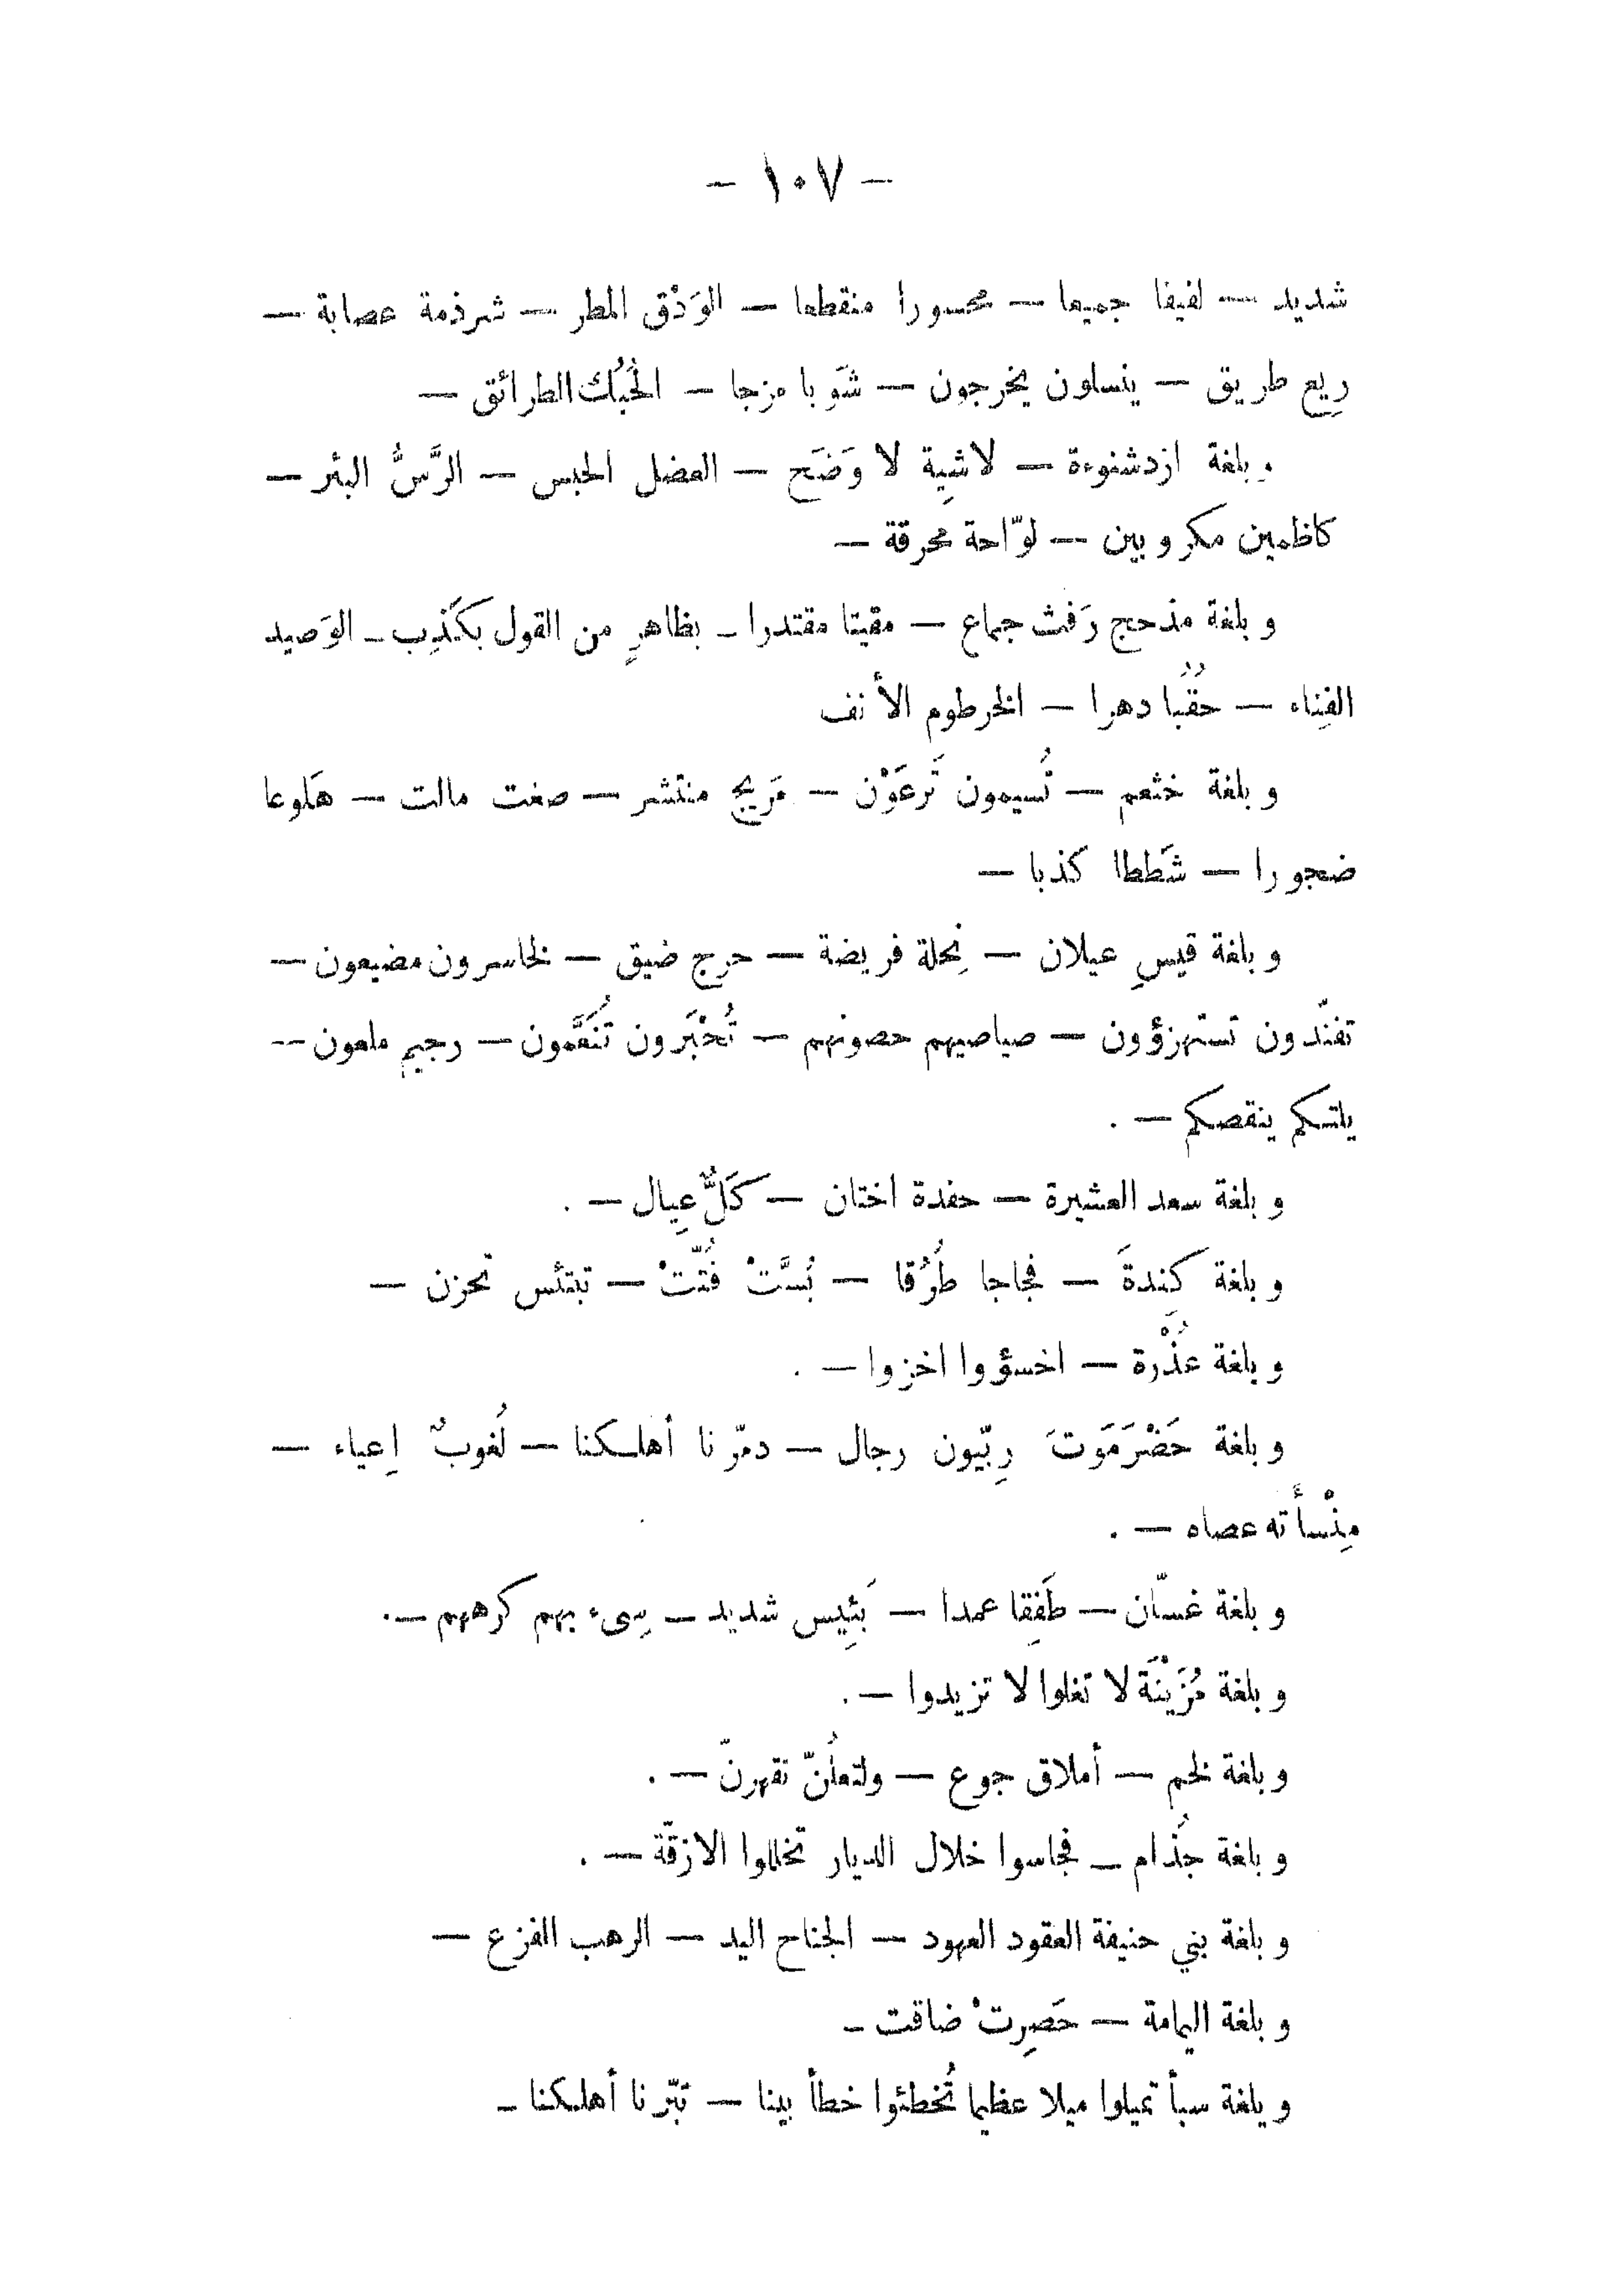 — ١٠٧ —
شديد — لفيفا جميعا — محسورا منقطعا — الوَدْق المطر — شرذمة عصابة —
رِيع طريق — ينسلون يخرجون — شَوبا مزجا — الحُبُك الطرائق —
وبلغة ازدشنوءة — لاشِية لا وَضَح — العضل الحبس — الرَّسُّ البئر —
كاظمين مكروبين — لوّاحة محرقة —
وبلغة مذحج رَفث جماع — مقيتا مقتدرا — بظاهرٍ من القول بكَذِب — الوَصيد
الفِناء — حقُبُا دهرا — الخرطوم الأنف
وبلغة خثعم — تُسيمون تَرعَوْن — مَريج منتشر — صغت مالت — هَلوعا
ضجورا — شَططا كذبا —
وبلغة قيسِ عيلان — نِحلة فريضة — حرج ضيق — لخاسرون مضيعون —
تفنّدون تستهزؤون — صياصيهم حصونهم — تُحْبَرون تُنَعَّمون — رجيم ملعون —
يلتكم ينقصكم — .
وبلغة سعد العشيرة — حفدة اختان — كَلٌّ عِيال — .
وبلغة كِندةَ — فجاجا طُرُقا — بُسَّتْ فُتّتْ — تبتئس تحزن —
وبلغة عُذْرة — اخسؤوا اخزوا — .
وبلغة حَضْرَمَوتَ رِبّيون رجال — دمّرنا أهلكنا — لُغوبٌ اِعياء —
مِنْسأته عصاه — .
وبلغة غسّان — طَفِقا عمدا — بَئِيس شديد — سِىء بهم كرههم — .
وبلغة مُزَيْنَة لا تغلوا لا تزيدوا — .
وبلغة لخم — أملاق جوع — ولتعلُنّ تقهرنّ — .
وبلغة جُذام — فجاسوا خلال الديار تخللوا الازقّة — .
وبلغة بني حنيفة العقود العهود — الجناح اليد — الرهب الفزع —
وبلغة اليمامة — حَصِرتْ ضاقت —
وبلغة سبأ تميلوا ميلا عظيما تُخطئوا خطأ بينا — تبّرنا أهلكنا —